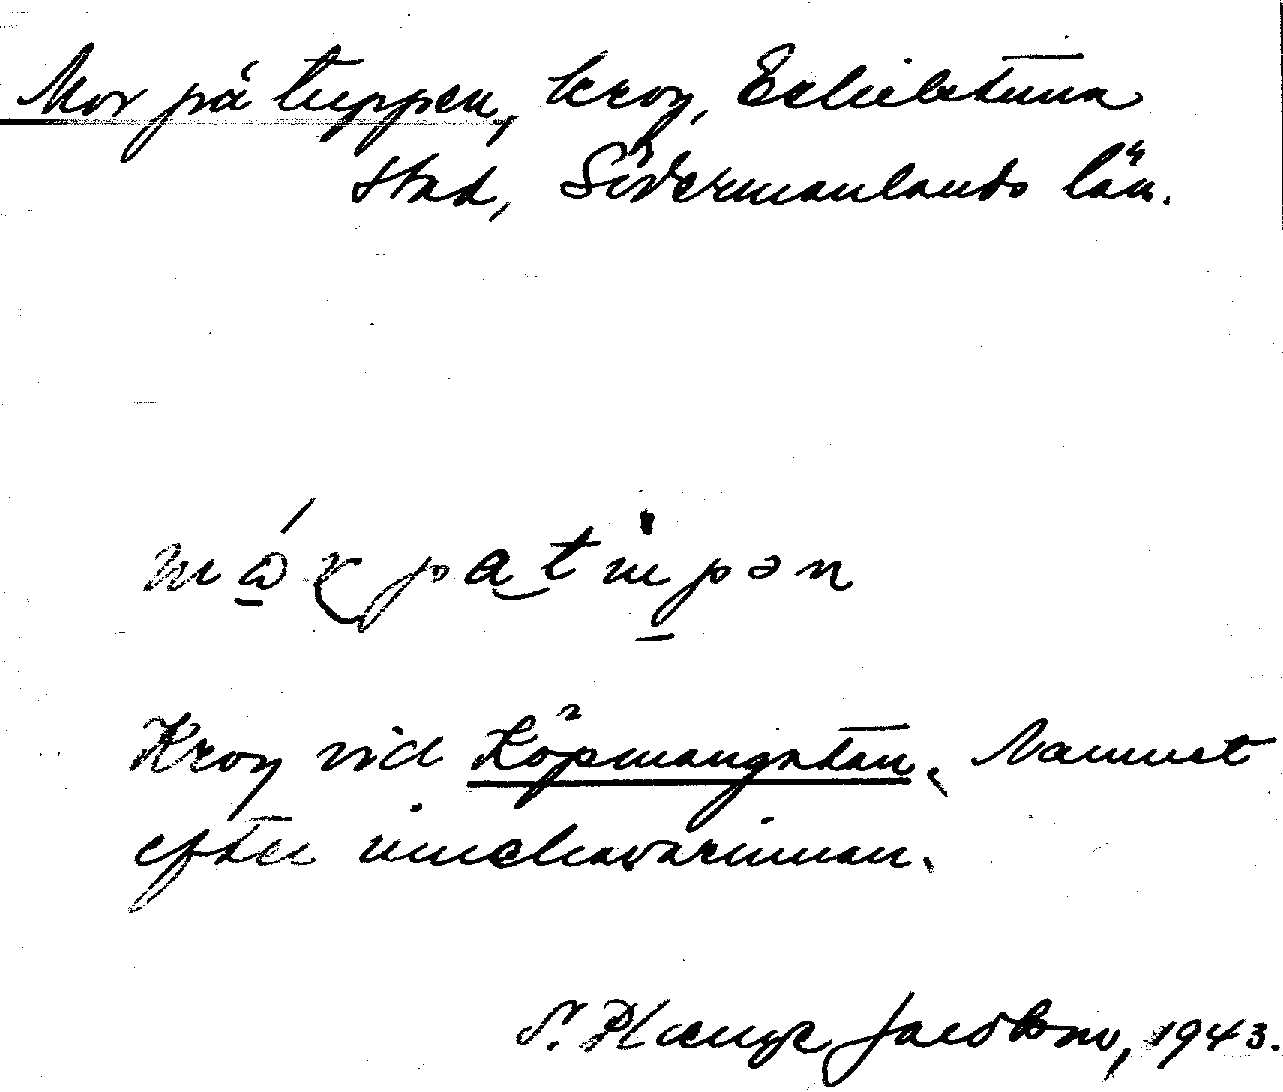 Mor på tuppen, krog, Eskilstuna
stad, Södermanlands län.
Krog vid Köpmangatan. Namnet
efter innehavarinnan.
S. Plænge Jacobson, 1943.